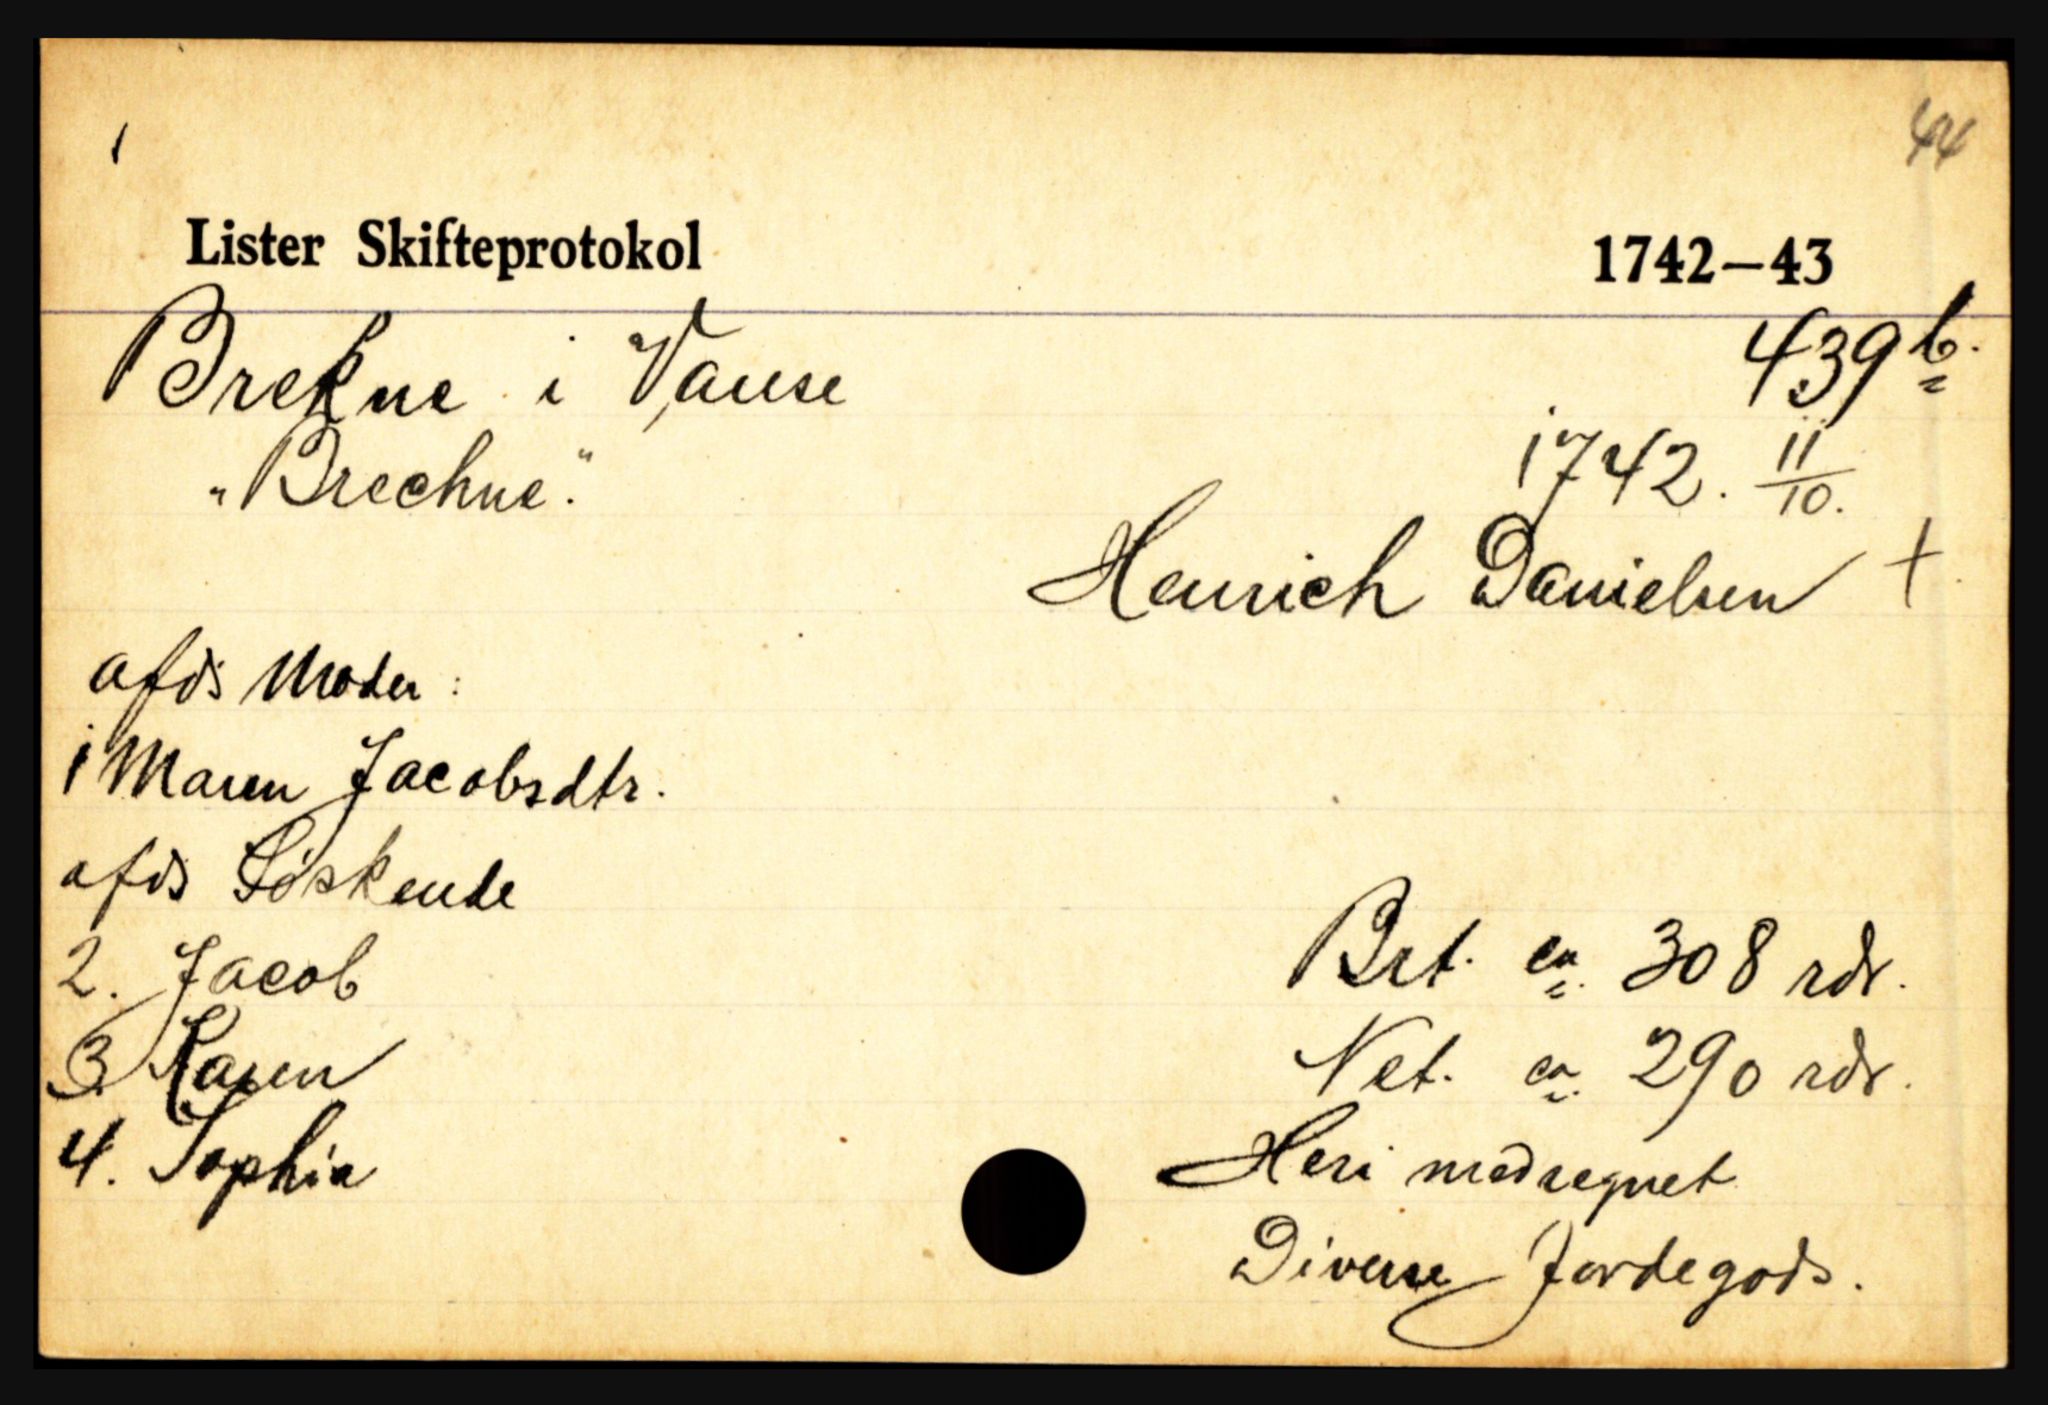 1
44
Lister Skifteprotokol 1742—43
Brekne i Vanse 439 b.
"Brechne". 1742. 11/10.
Henrich Danielsen †.
afds Moder:
1 Maren Jacobsdtr.
afds Söskende
2. Jacob Brt. ca. 308 rdr.
3. Karen Net. ca. 290 rdr.
4. Sophia Heri medregnet
Diverse Jordegods.